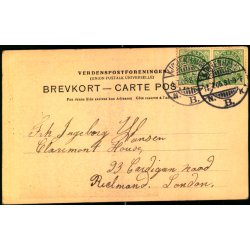 VERDENSPOSTFORENINGEN
(UNION POSTALE UNIVERSELLE)
BREVKORT — CARTE POS
Paa denne Side skrives kun Adressen. (Côté réservé à l'adr
KJØBENHAVN
B.
B.
Frk Ingeborg Hansen
Claremont House
23 Cardigan road
Richmond. London.